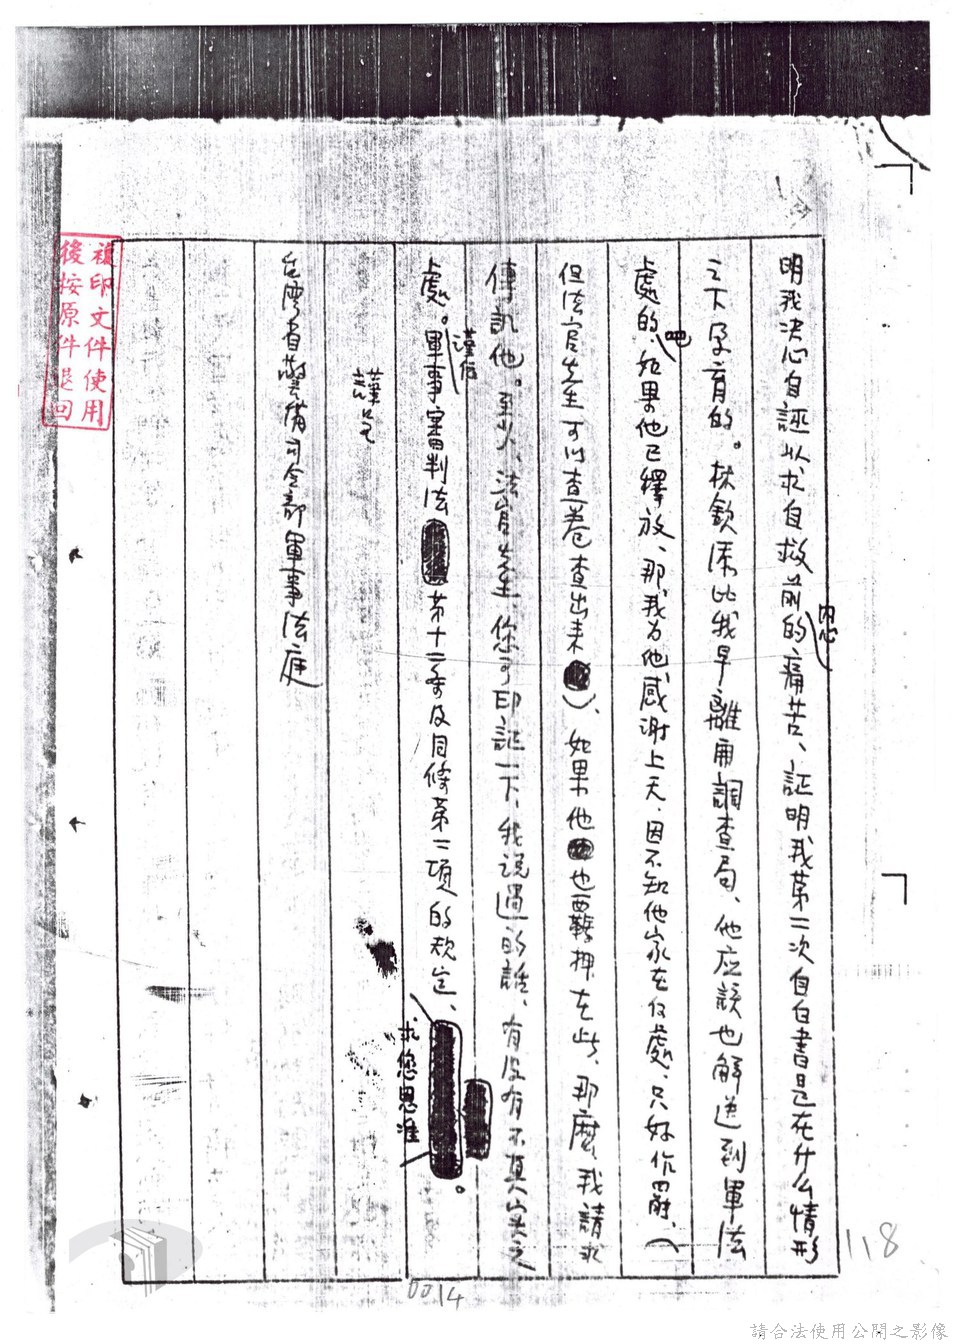 明我決心自誣以求自救前的內心痛苦、証明我第二次自白書是在什么情形
之下孕育的。林欽添比我早離開調查局、他应該也解送到軍法
處的吧、如果他已釋放、那我为他感謝上天、因不知他家在何處、只好作罷、(
但法官先生可以查卷查出来)、如果他也羈押在此、那麼、我請求
傳訊他。至少、法官先生、您可印証一下、我說過的話、有沒有不真实之
處。謹依軍事審判法第十二条及同條第二項的規定、求您恩准。
謹呈
台灣省警備司令部軍事法庭
複印文件使用
後按原件退回
118
0014
請合法使用公開之影像